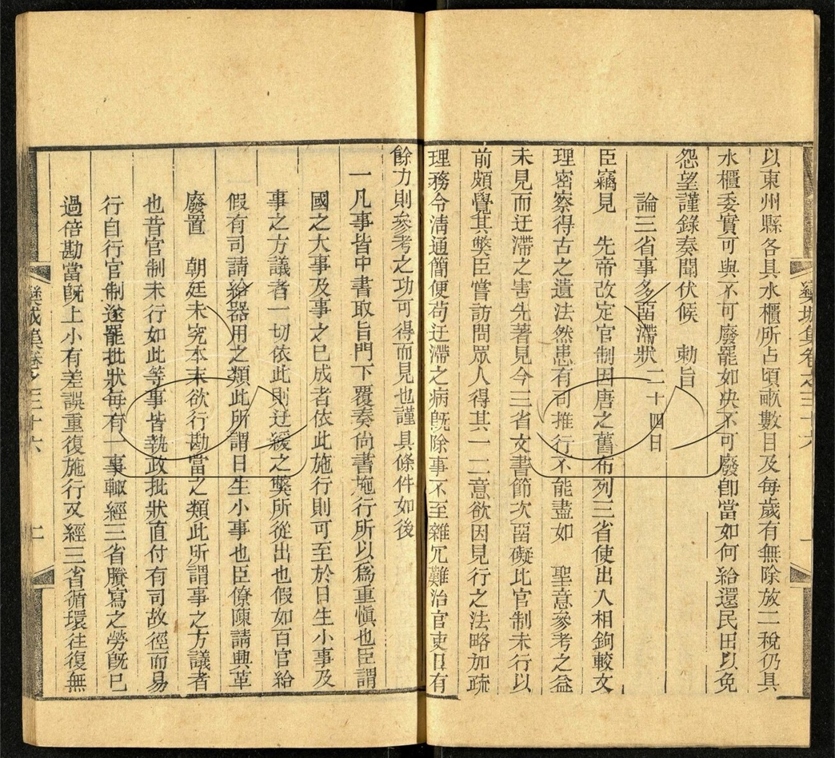 以東州縣各具水櫃所占頃畝數目及每歲有無除放二稅仍具
水櫃委實可與不可廢罷如決不可廢卽當如何給還民田以免
怨望謹錄奏聞伏候 勅旨
論三省事多留滯狀二十四日
臣竊見 先帝改定官制因唐之舊布列三省使出入相鉤較文
理密察得古之遺法然患有司推行不能盡如 聖意參考之益
未見而迂滯之害先著見今三省文書節次留礙比官制未行以
前頗覺其獘臣嘗訪問眾人得其一二意欲因見行之法略加疏
理務令清通簡便苟迂滯之病旣除事不至雜冗難治官吏日有
餘力則參考之功可得而見也謹具條件如後
一凡事皆中書取旨門下覆奏尚書施行所以爲重愼也臣謂
國之大事及事之已成者依此施行則可至於日生小事及
事之方議者一切依此則迂緩之獘所從出也假如百官給
假有司請給器用之類此所謂日生小事也臣僚陳請興革
廢置 朝廷未究本末欲行勘當之類此所謂事之方議者
也昔官制未行如此等事皆執政批狀直付有司故徑而易
行自行官制遂罷批狀每有一事輒經三省謄寫之勞旣已
過倍勘當旣上小有差誤重復施行又經三省循環往復無
欒城集卷之三十六